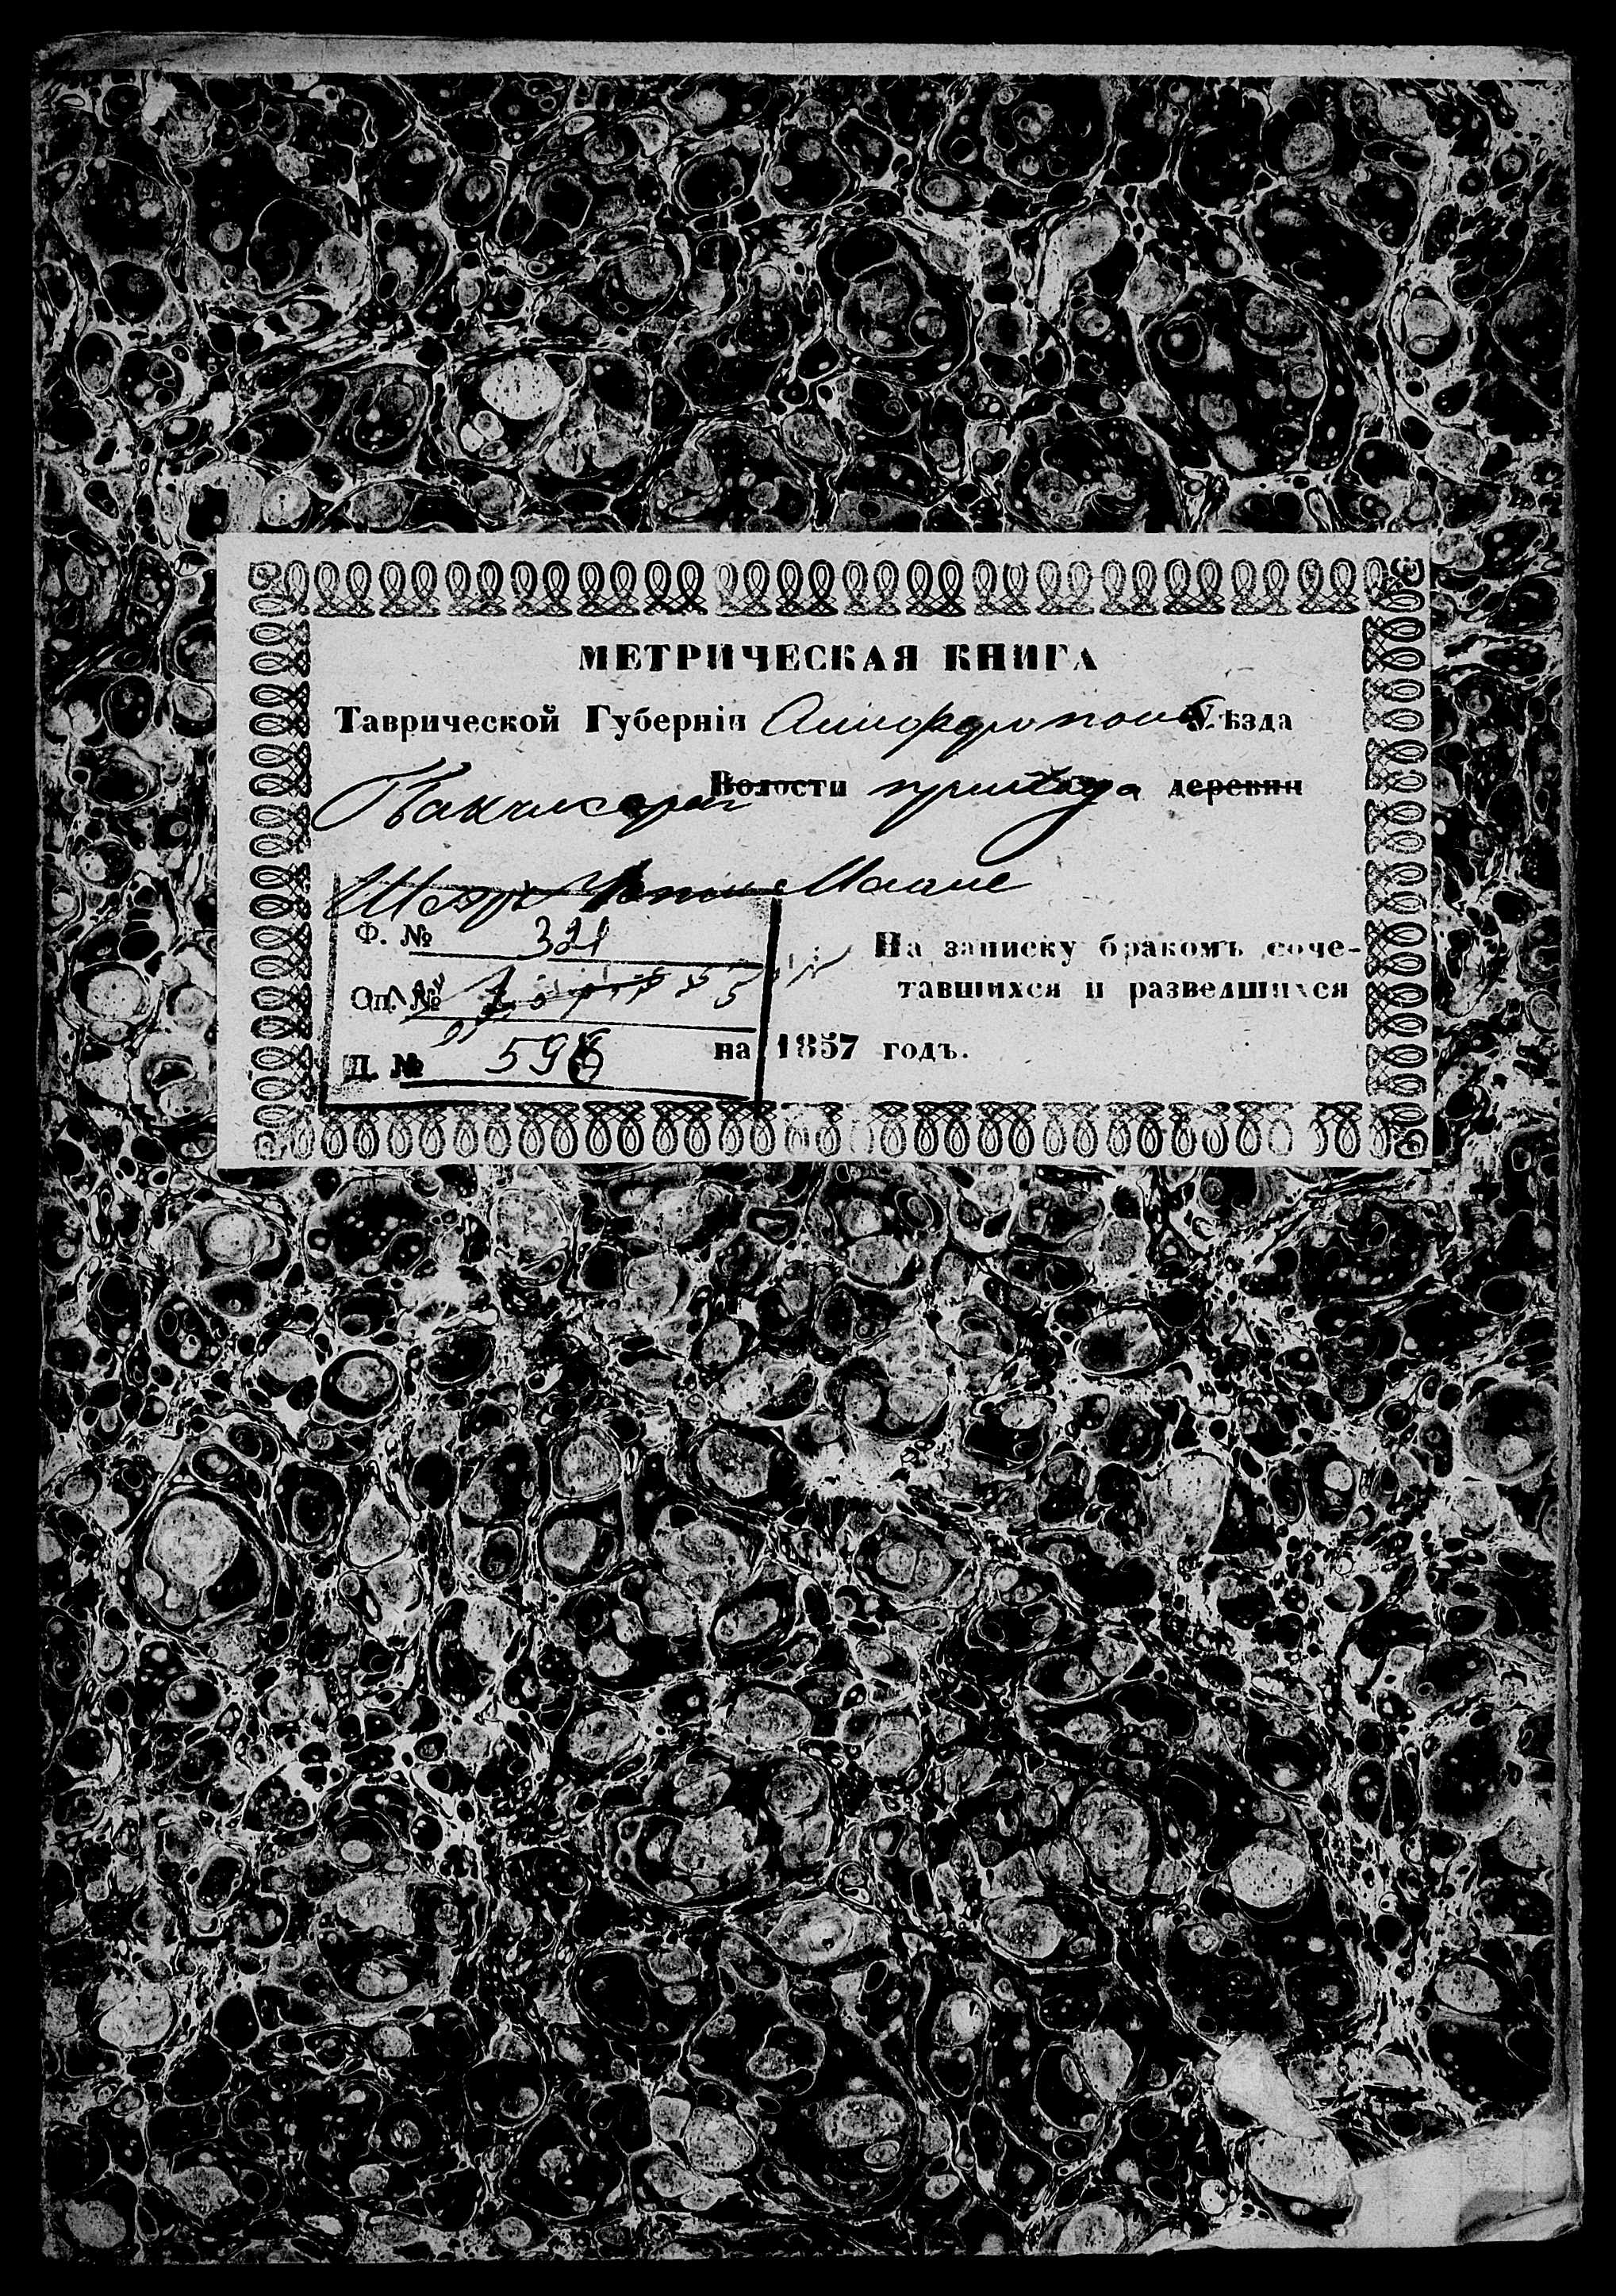 МЕТРИЧЕСКАЯ КНИГА
Таврической Губерніи Симферопол Уѣзда
Бахчисарай Волости прихода деревни
Мааме
Ф. № 321
Оп. №
Д. № 596
На записку бракомъ соче-
тавшихся и разведшихся
на 1857 годъ.